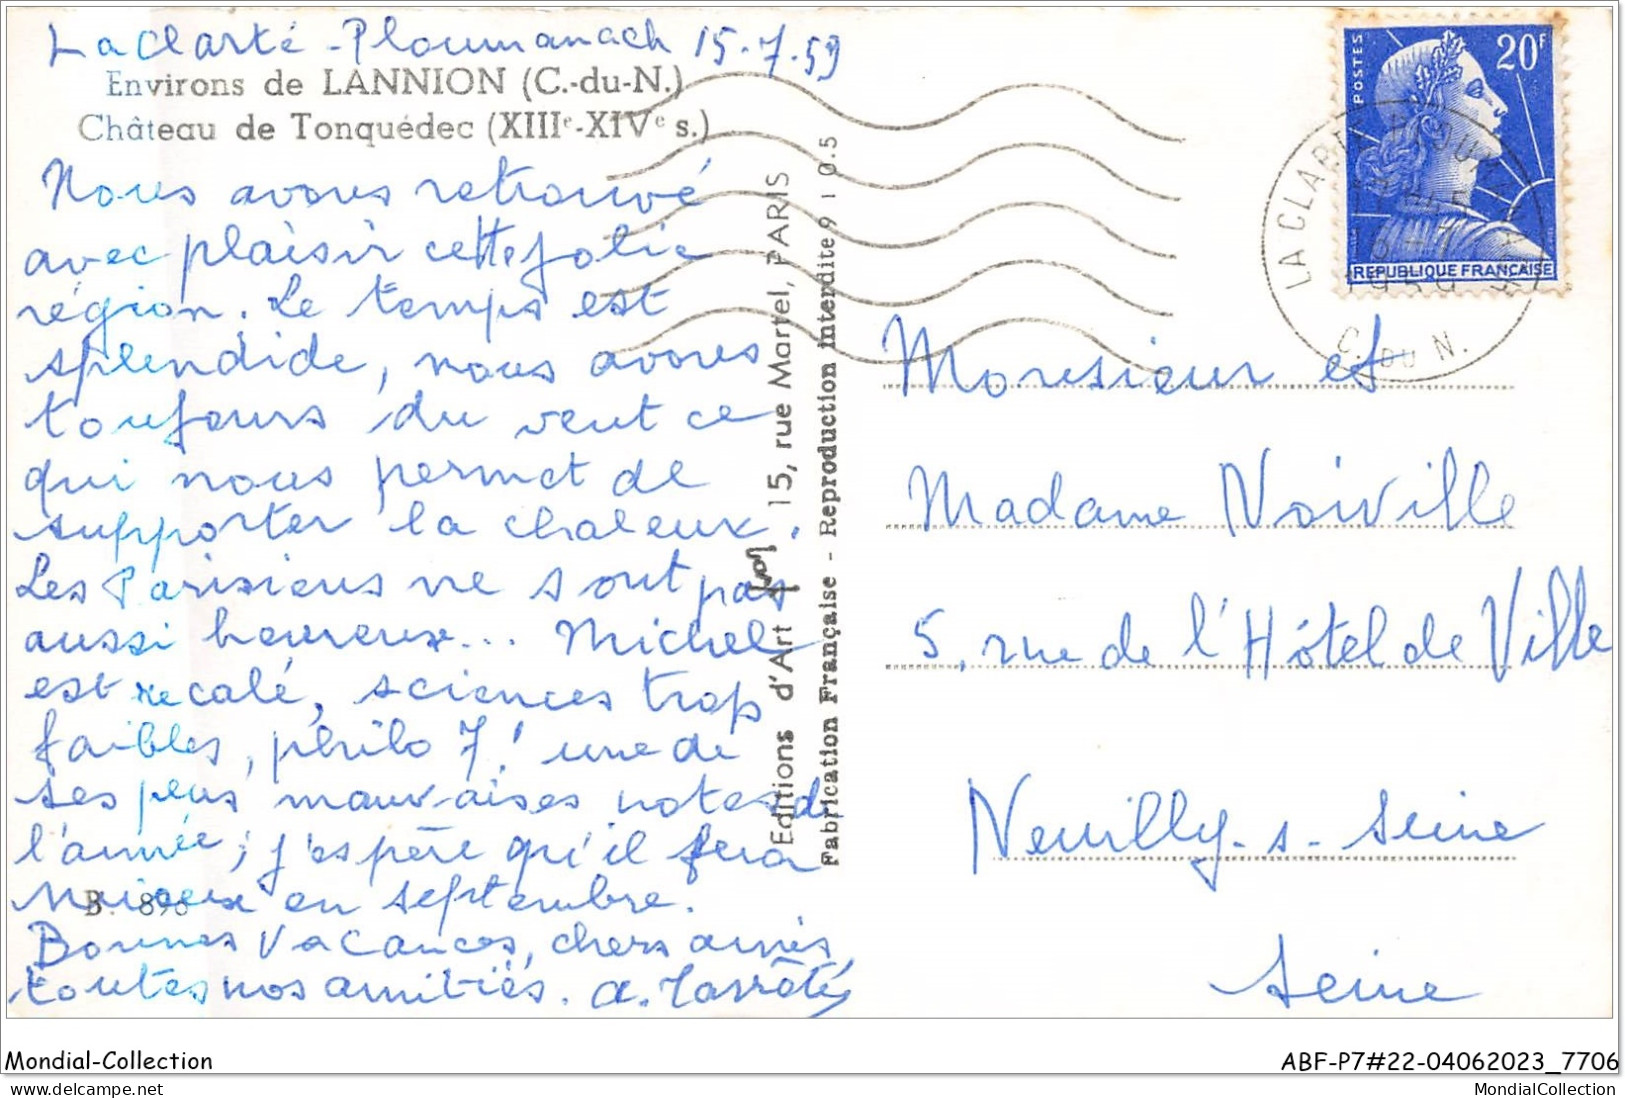 La Clarté - Ploumanach 15.7.59
Environs de LANNION (C.-du-N.)
Château de Tonquédec (XIIIe-XIVe s.)
Nous avons retrouvé
avec plaisir cette jolie
région. Le temps est
splendide, nous avons
toujours du vent ce
qui nous permet de
supporter la chaleur.
Les Parisiens ne sont pas
aussi heureux... Michel
est recalé, sciences trop
faibles, philo 7! une de
ses plus mauvaises notes de
l'année; j'espère qu'il fera
mieux en septembre.
B. 896
Bonnes Vacances, chers amis,
toutes nos amitiés.
Editions d'Art Yvon 15, rue Martel, PARIS
Fabrication Française - Reproduction interdite 9 1 0.5
POSTES
20F
REPUBLIQUE FRANÇAISE
LA CLARTÉ PLOUMANACH
1959
C. DU N.
Monsieur et
Madame Noiville
5, rue de l'Hôtel de Ville
Neuilly-s-Seine
Seine
Mondial-Collection
ABF-P7#22-04062023_7706
MondialCollection